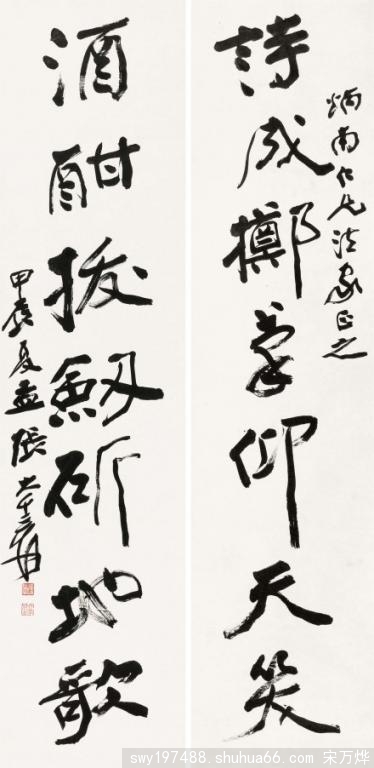 炳南仁兄法家正之
詩成擲筆仰天笑
酒酣拔劍斫地歌
甲辰夏孟 張大千爰
swy197488.shuhua66.com 宋万烨